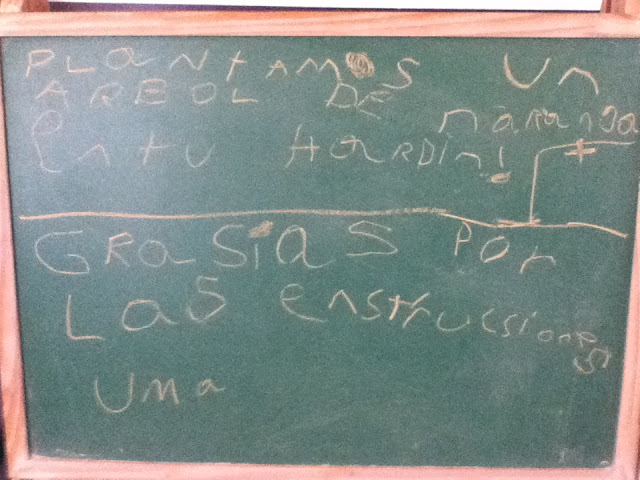 PLANTAMOS Un
ARBOL DE naranja
En tu HARDin!
GRaSiaS Por
LaS enstrucsiones
Uma